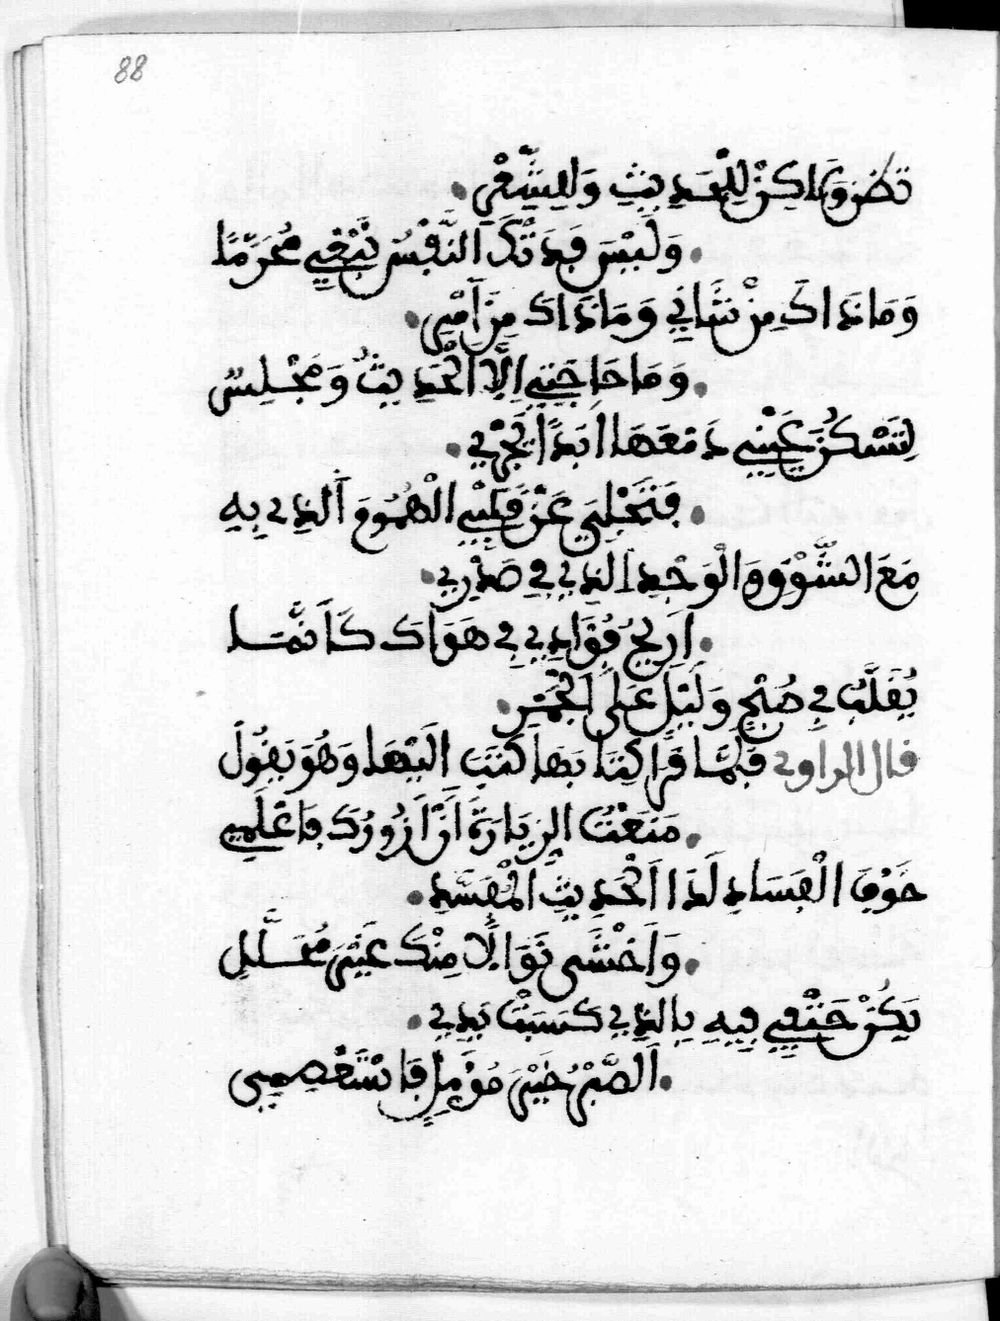 88
تظن ولاكن للحديث وللشعر.
. وليس قدتك النفس تبغي محرما
وماذاك من شاني وماذاك من امري.
. وما حاجتي الا الحديث ومجلس
لتسكن عيني دمعها ابدا يجري.
. فتنجلي عن قلبي الهموم الذي به
مع الشوق والوجد الذي في صدري.
. اري فؤادي في هواك كانما
يقلب في صبح وليل على الجمر.
قال الراوي فلما قرا كتابها كتب اليها وهو يقول
. منعت الزيارة ان ازورك فاعلمي
خوف الفساد لذا الحديث المفسد.
. واخشى نوالا منك غير محلل
يكن حتفي فيه بالذي كسبت يدي.
. الصبر خير مؤمل فاستعصمي